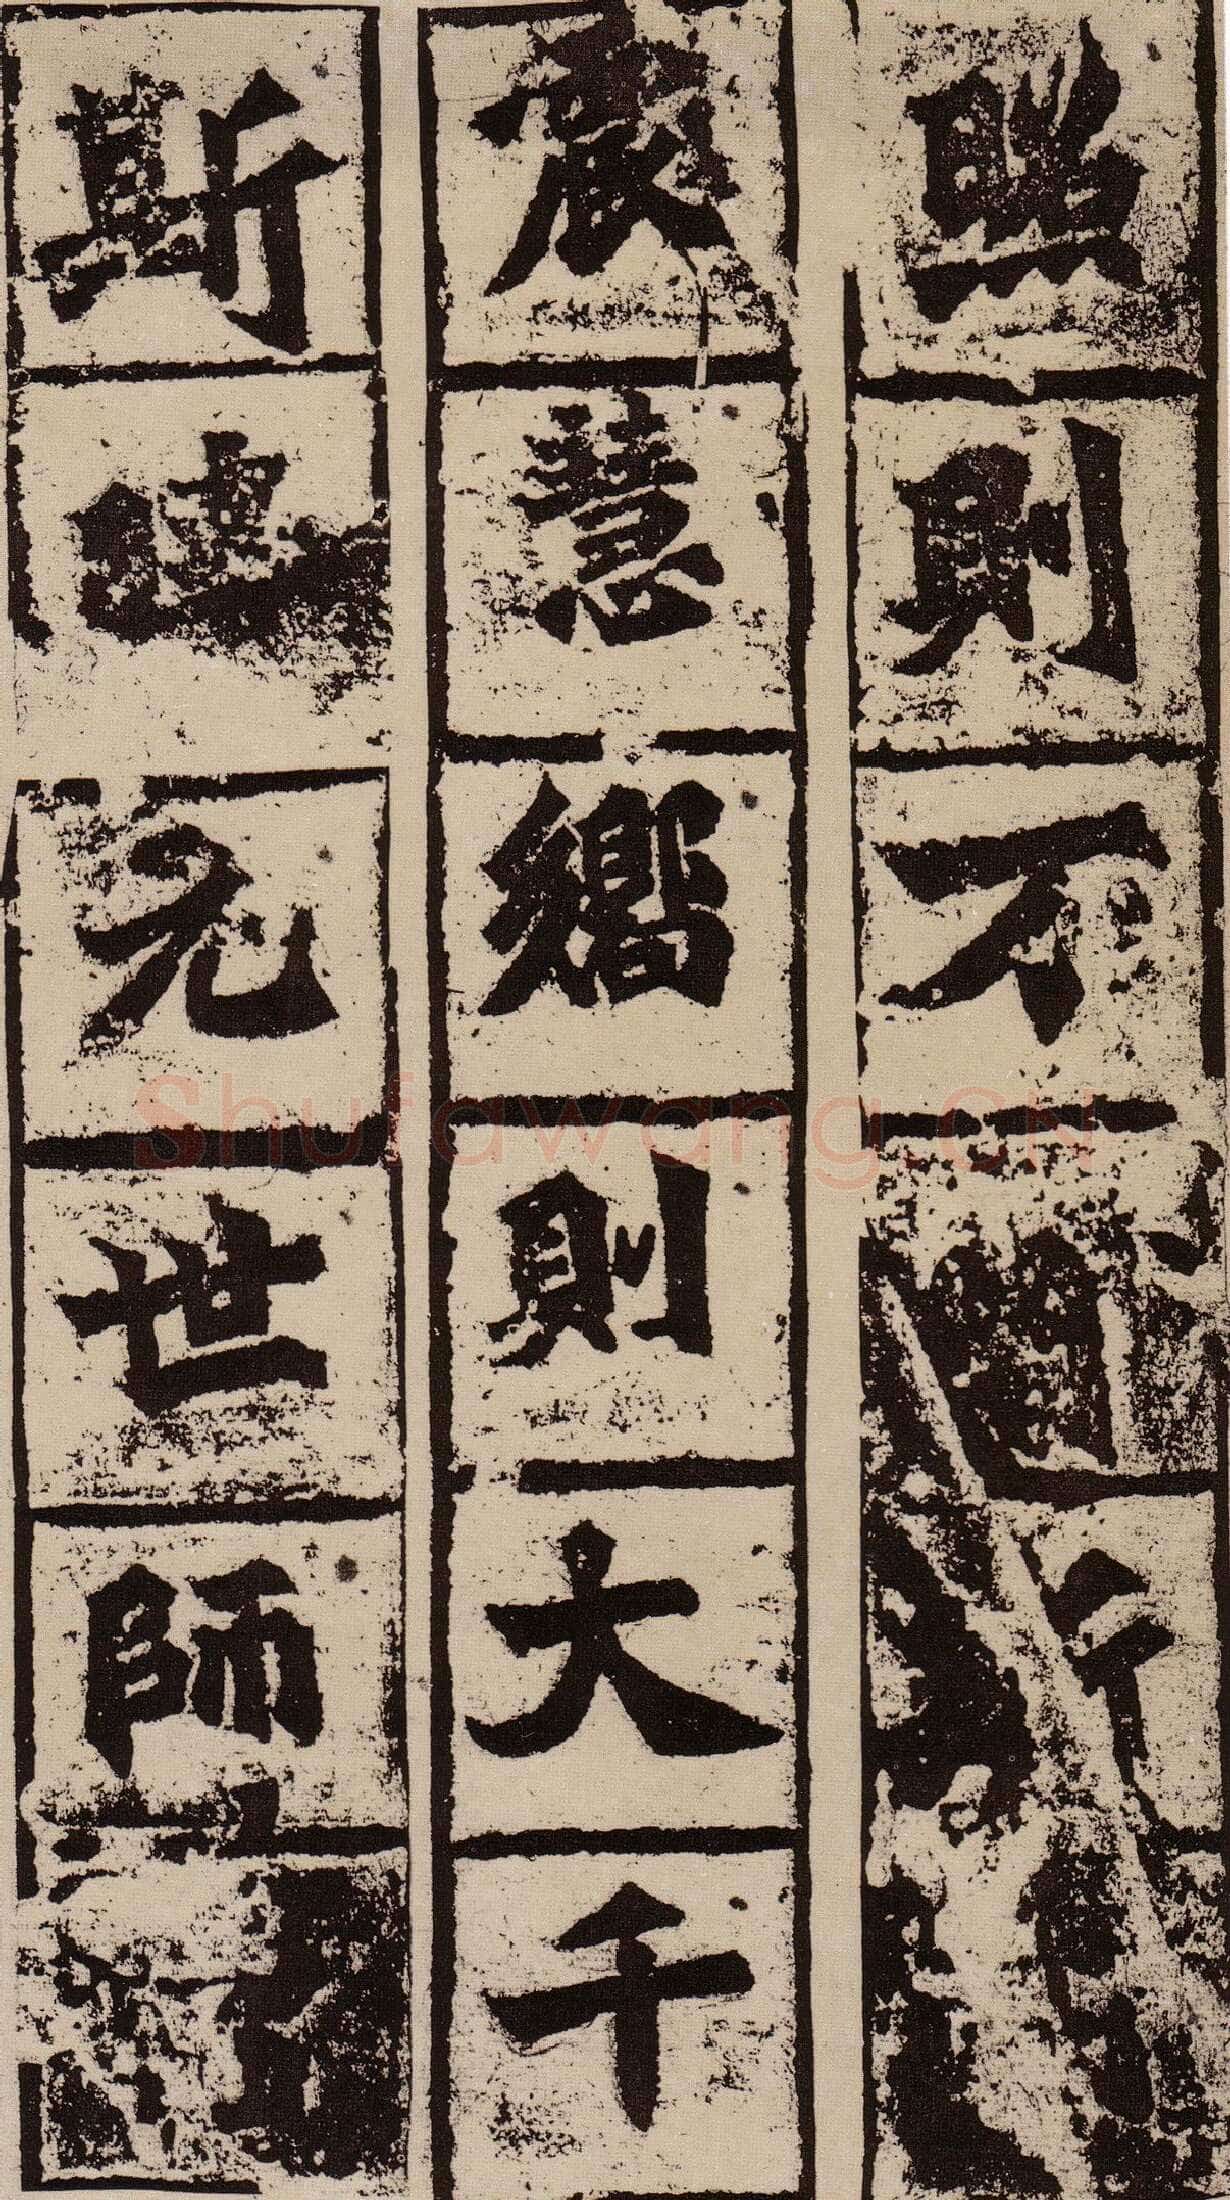 照則不斯
震慧嚮則大千
斯元世師
Shufawang.CN